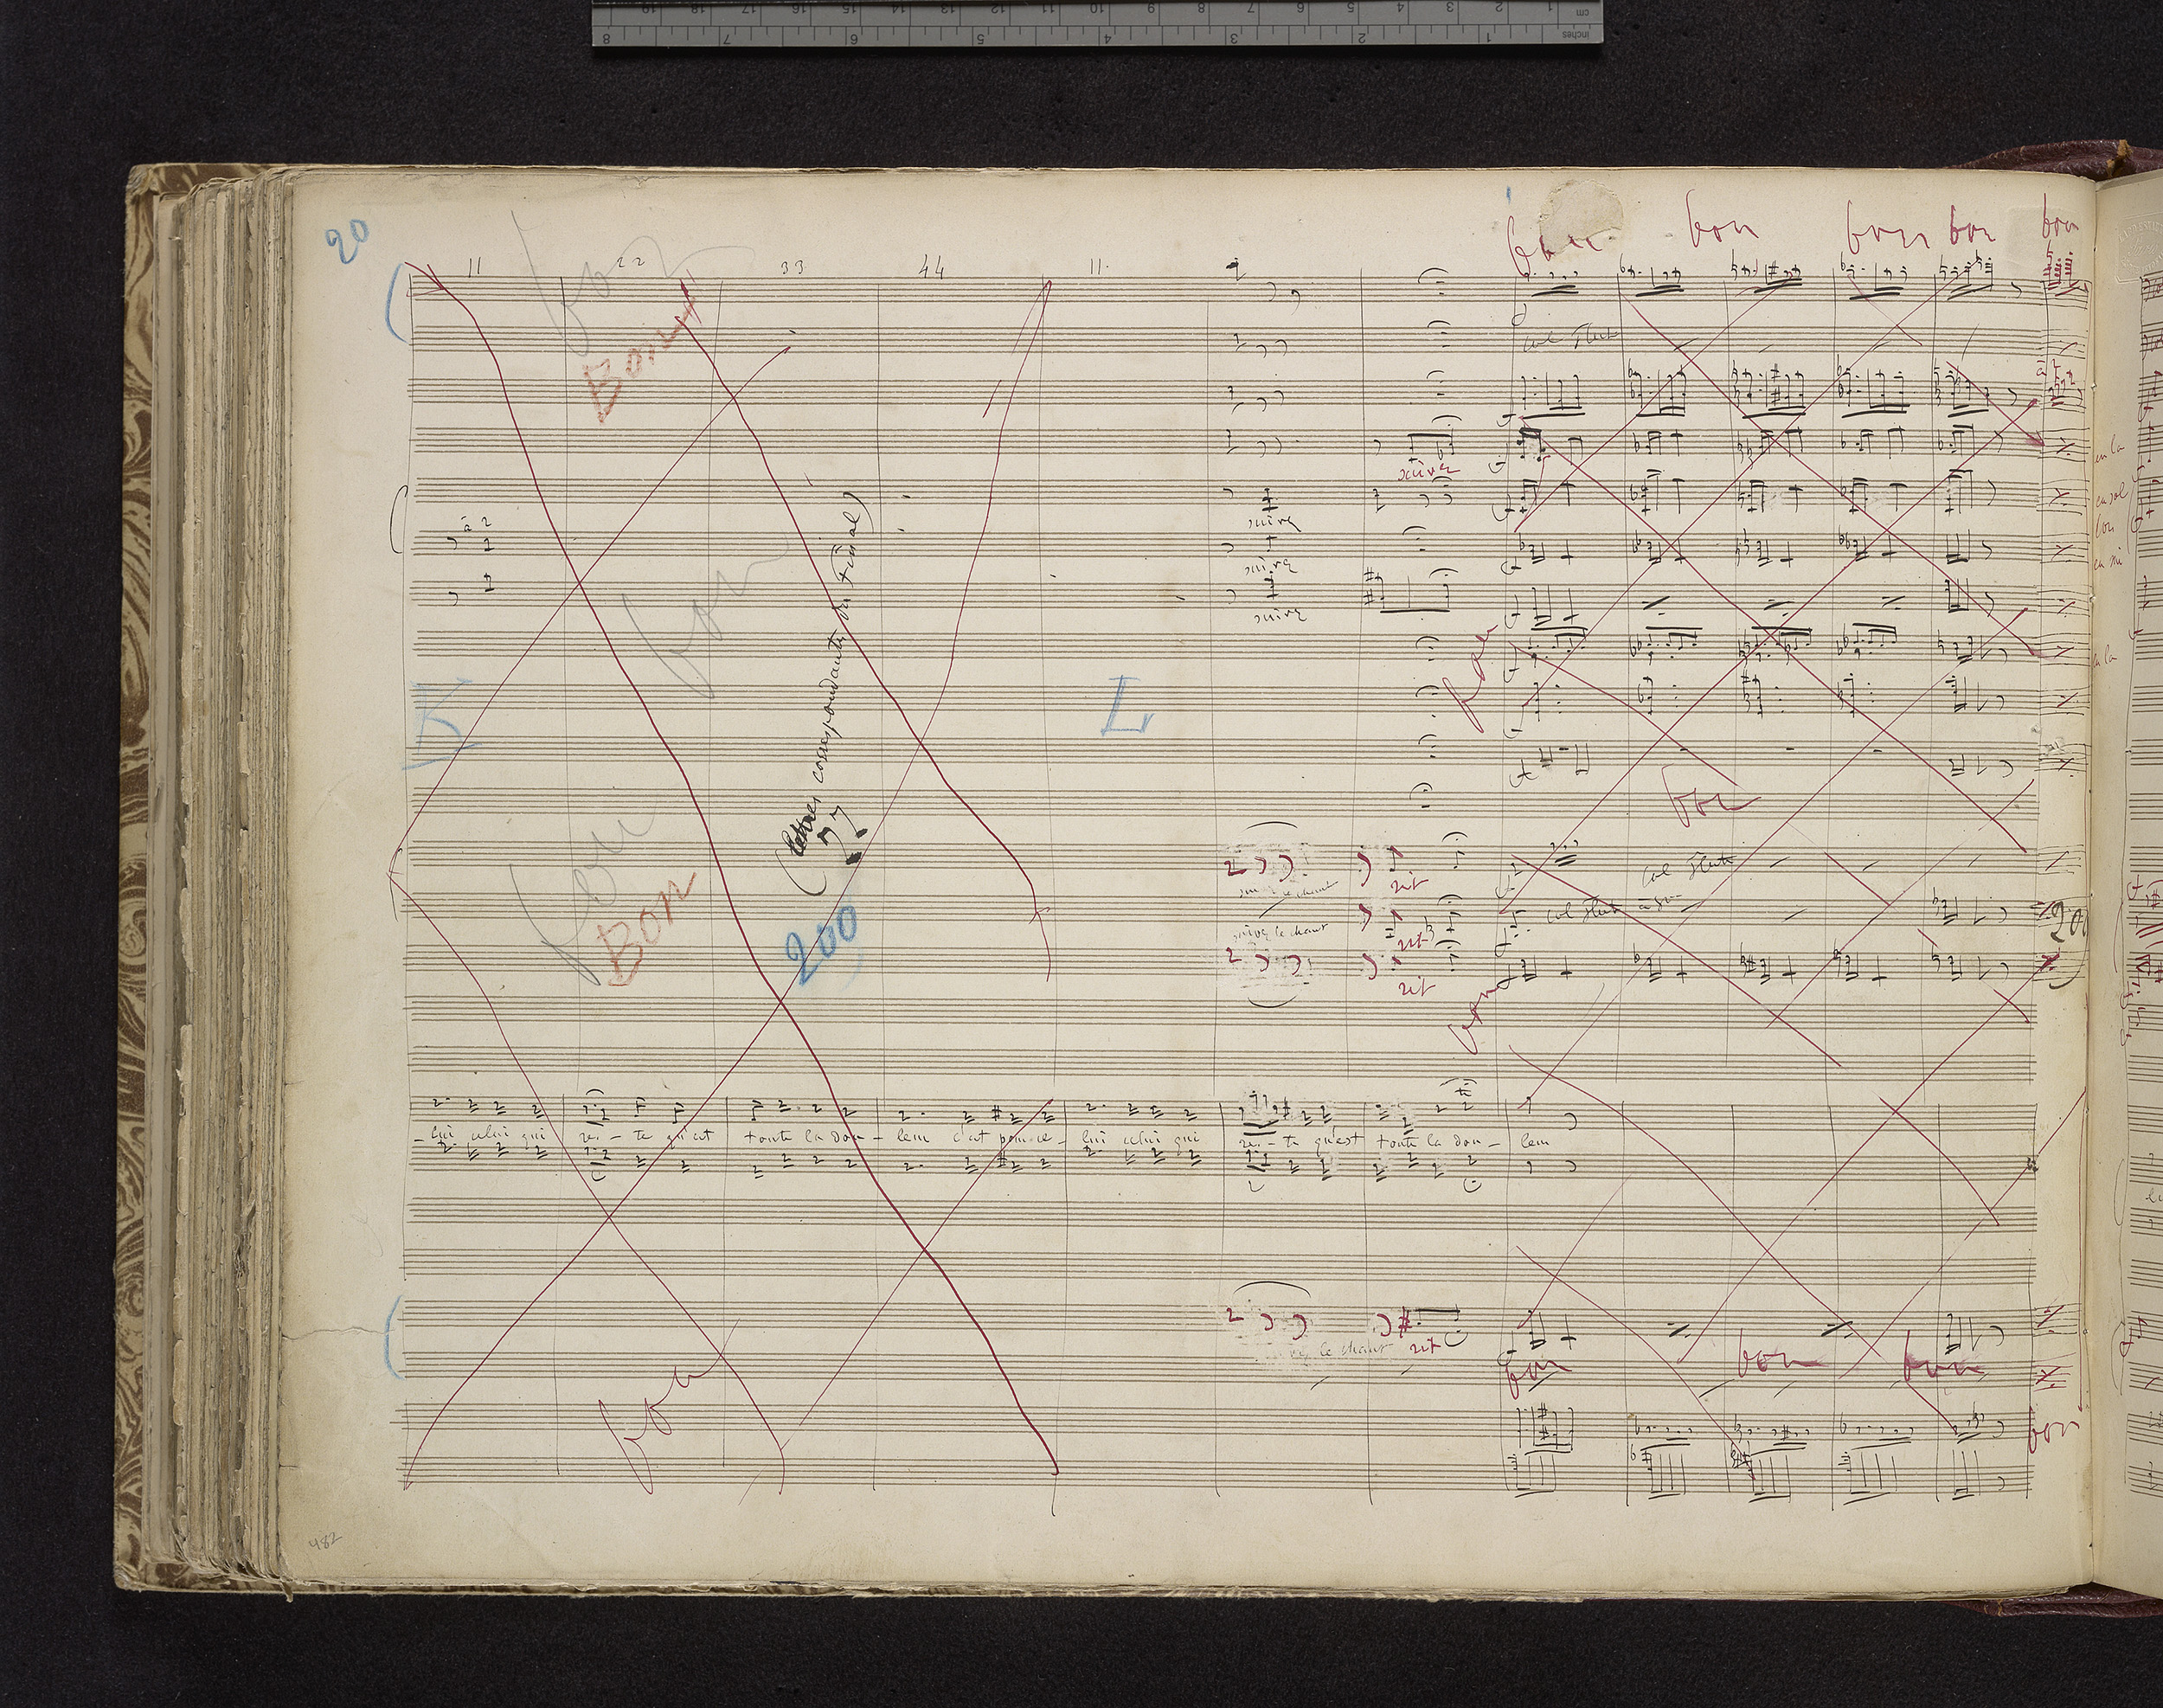 20
bon bon bon bon bon
11 22 33 44 11
bon
Bon
col Flute
à 2
suivez
en la
en sol
bon
à 2
suivez
suivez
en mi
suivez
bon
(lettres correspondantes du Final)
bon
en la
K
L
bon
bon
Bon
200
suivez le chant
rit
col Flute
suivez le chant
rit
col Flute à 8va
rit
bon
- lui celui qui res - te qu'est toute la dou - leur c'est pour ce - lui celui qui res - te qu'est toute la dou - leur
suivez le chant
rit
bon bon bon
bon
bon
482
cm 1 2 3 4 5 6 7 8 9 10 11 12 13 14 15 16 17 18 19
inches 1 2 3 4 5 6 7 8